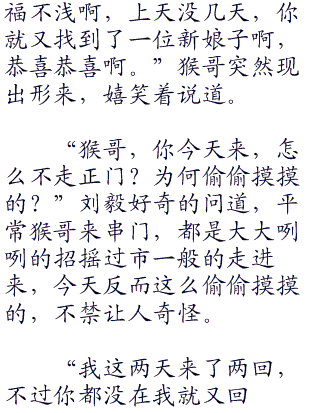 福不浅啊，上天没几天，你
就又找到了一位新娘子啊，
恭喜恭喜啊。”猴哥突然现
出形来，嬉笑着说道。
“猴哥，你今天来，怎
么不走正门？为何偷偷摸摸
的？”刘毅好奇的问道，平
常猴哥来串门，都是大大咧
咧的招摇过市一般的走进
来，今天反而这么偷偷摸摸
的，不禁让人奇怪。
“我这两天来了两回，
不过你都没在我就又回